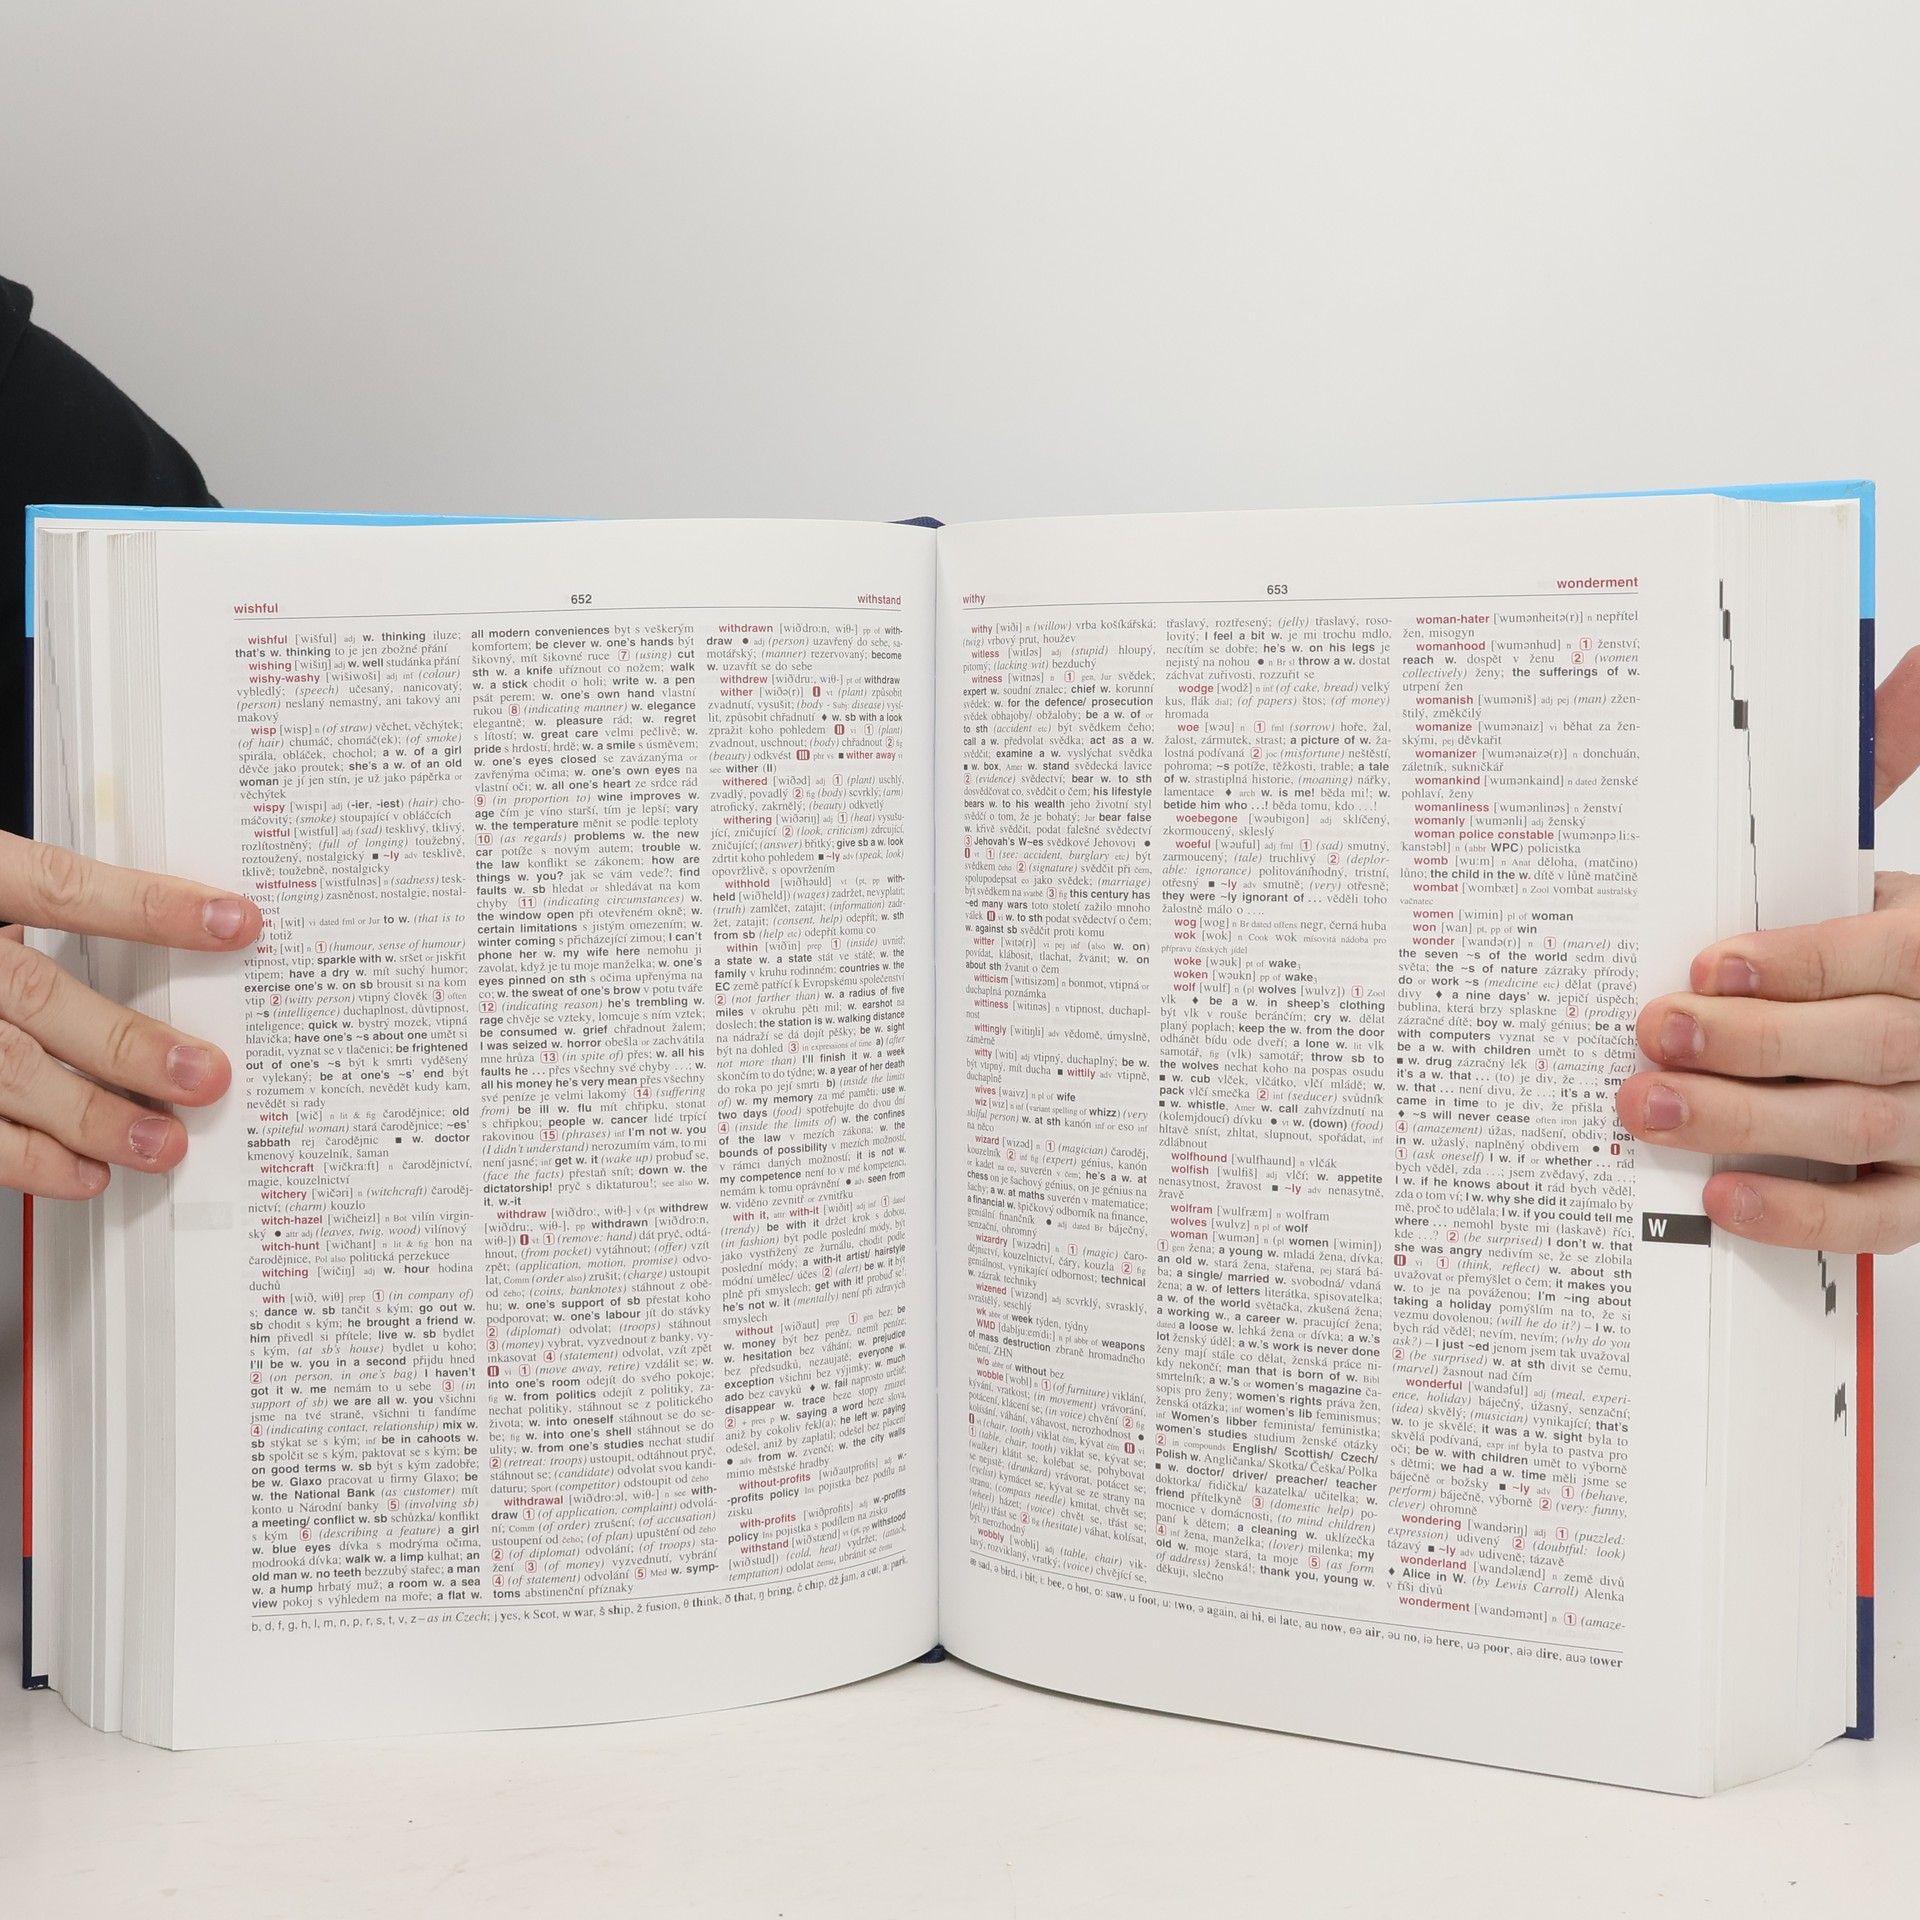 wishful 652 withstand
wishful [wišful] adj w. thinking iluze;
that's w. thinking to je jen zbožné přání
wishing [wišiŋ] adj w. well studánka přání
wishy-washy [wišiwoši] adj inf (colour)
vybledlý; (speech) učesaný, nanicovatý;
(person) neslaný nemastný, ani takový ani
makový
wisp [wisp] n (of straw) věchet, věchýtek;
(of hair) chumáč, chomáč(ek); (of smoke)
spirála, obláček, chochol; a w. of a girl
děvče jako proutek; she's a w. of an old
woman je jí jen stín, je už jako pápěrka or
věchýtek
wispy [wispi] adj (-ier, -iest) (hair) cho-
máčovitý; (smoke) stoupající v obláčcích
wistful [wistful] adj (sad) tesklivý, tklivý,
rozlítostněný; (full of longing) toužebný,
roztoužený, nostalgický ■ ~ly adv tesklivě,
tklivě; toužebně, nostalgicky
wistfulness [wistfulnəs] n (sadness) tesk-
livost; (longing) zasněnost, nostalgie, nostal-
[wit] vi dated fml or Jur to w. (that is to
totiž
wit2 [wit] n 1 (humour, sense of humour)
vtipnost, vtip; sparkle with w. sršet or jiskřit
vtipem; have a dry w. mít suchý humor;
exercise one's w. on sb brousit si na kom
vtip 2 (witty person) vtipný člověk 3 often
pl ~s (intelligence) duchaplnost, důvtipnost,
inteligence; quick w. bystrý mozek, vtipná
hlavička; have one's ~s about one umět si
poradit, vyznat se v tlačenici; be frightened
out of one's ~s být k smrti vyděšený
or vylekaný; be at one's ~s' end být
s rozumem v koncích, nevědět kudy kam,
nevědět si rady
witch [wič] n lit & fig čarodějnice; old
w. (spiteful woman) stará čarodějnice; ~es'
sabbath rej čarodějnic ■ w. doctor
kmenový kouzelník, šaman
witchcraft [wičkra:ft] n čarodějnictví,
magie, kouzelnictví
witchery [wičəri] n (witchcraft) čaroděj-
nictví; (charm) kouzlo
witch-hazel [wičheizl] n Bot vilín virgin-
ský ● attr adj (leaves, twig, wood) vilínový
witch-hunt [wičhant] n lit & fig hon na
čarodějnice, Pol also politická perzekuce
witching [wičiŋ] adj w. hour hodina
duchů
with [wið, wiθ] prep 1 (in company of)
s; dance w. sb tančit s kým; go out w.
sb chodit s kým; he brought a friend w.
him přivedl si přítele; live w. sb bydlet
s kým, (at sb's house) bydlet u koho;
I'll be w. you in a second přijdu hned
2 (on person, in one's bag) I haven't
got it w. me nemám to u sebe 3 (in
support of sb) we are all w. you všichni
jsme na tvé straně, všichni ti fandíme
4 (indicating contact, relationship) mix w.
sb stýkat se s kým; inf be in cahoots w.
sb spolčit se s kým, paktovat se s kým; be
on good terms w. sb být s kým zadobře;
be w. Glaxo pracovat u firmy Glaxo; be
w. the National Bank (as customer) mít
konto u Národní banky 5 (involving sb)
a meeting/ conflict w. sb schůzka/ konflikt
s kým 6 (describing a feature) a girl
w. blue eyes dívka s modrýma očima,
modrooká dívka; walk w. a limp kulhat; an
old man w. no teeth bezzubý stařec; a man
w. a hump hrbatý muž; a room w. a sea
view pokoj s výhledem na moře; a flat w.
all modern conveniences byt s veškerým
komfortem; be clever w. one's hands být
šikovný, mít šikovné ruce 7 (using) cut
sth w. a knife uříznout co nožem; walk
w. a stick chodit o holi; write w. a pen
psát perem; w. one's own hand vlastní
rukou 8 (indicating manner) w. elegance
elegantně; w. pleasure rád; w. regret
s lítostí; w. great care velmi pečlivě; w.
pride s hrdostí, hrdě; w. a smile s úsměvem;
w. one's eyes closed se zavázanýma or
zavřenýma očima; w. one's own eyes na
vlastní oči; w. all one's heart ze srdce rád
9 (in proportion to) wine improves w.
age čím je víno starší, tím je lepší; vary
w. the temperature měnit se podle teploty
10 (as regards) problems w. the new
car potíže s novým autem; trouble w.
the law konflikt se zákonem; how are
things w. you? jak se vám vede?; find
faults w. sb hledat or shledávat na kom
chyby 11 (indicating circumstances) w.
the window open při otevřeném okně; w.
certain limitations s jistým omezením; w.
winter coming s přicházející zimou; I can't
phone her w. my wife here nemohu jí
zavolat, když je tu moje manželka; w. one's
eyes pinned on sth s očima upřenýma na
co; w. the sweat of one's brow v potu tváře
12 (indicating reason) he's trembling w.
rage chvěje se vzteky, lomcuje s ním vztek;
be consumed w. grief chřadnout žalem;
I was seized w. horror obešla or zachvátila
mne hrůza 13 (in spite of) přes; w. all his
faults he ... přes všechny své chyby ...; w.
all his money he's very mean přes všechny
své peníze je velmi lakomý 14 (suffering
from) be ill w. flu mít chřipku, stonat
s chřipkou; people w. cancer lidé trpící
rakovinou 15 (phrases) inf I'm not w. you
(I didn't understand) nerozumím vám, to mi
není jasné; inf get w. it (wake up) probuď se,
(face the facts) přestaň snít; down w. the
dictatorship! pryč s diktaturou!; see also w.
it, w.-it
withdraw [wiðdro:, wiθ-] v (pt withdrew
[wiðdru:, wiθ-], pp withdrawn [wiðdro:n,
wiθ-]) I vt 1 (remove: hand) dát pryč, odtá-
hnout, (from pocket) vytáhnout; (offer) vzít
zpět; (application, motion, promise) odvo-
lat, Comm (order also) zrušit; (charge) ustoupit
od čeho; (coins, banknotes) stáhnout z obě-
hu; w. one's support of sb přestat koho
podporovat; w. one's labour jít do stávky
2 (diplomat) odvolat; (troops) stáhnout
3 (money) vybrat, vyzvednout z banky, vy-
inkasovat 4 (statement) odvolat, vzít zpět
II vi 1 (move away, retire) vzdálit se; w.
into one's room odejít do svého pokoje;
fig w. from politics odejít z politiky, za-
nechat politiky, stáhnout se z politického
života; w. into oneself stáhnout se do se-
be; fig w. into one's shell stáhnout se do
ulity; w. from one's studies nechat studií
2 (retreat: troops) ustoupit, odtáhnout pryč,
stáhnout se; (candidate) odvolat svou kandi-
daturu; Sport (competitor) odstoupit od čeho
withdrawal [wiðdro:əl, wiθ-] n see with-
draw 1 (of application, complaint) odvolá-
ní; Comm (of order) zrušení; (of accusation)
ustoupení od čeho; (of plan) upuštění od čeho
2 (of diplomat) odvolání; (of troops) sta-
žení 3 (of money) vyzvednutí, vybrání
4 (of statement) odvolání 5 Med w. symp-
toms abstinenční příznaky
withdrawn [wiðdro:n, wiθ-] pp of with-
draw ● adj (person) uzavřený do sebe, sa-
motářský; (manner) rezervovaný; become
w. uzavřít se do sebe
withdrew [wiðdru:, wiθ-] pt of withdraw
wither [wiðə(r)] I vt (plant) způsobit
zvadnutí, vysušit; (body - Subj: disease) vysí-
lit, způsobit chřadnutí ♦ w. sb with a look
zpražit koho pohledem II vi 1 (plant)
zvadnout, uschnout; (body) chřadnout 2 fig
(beauty) odkvést III phr vs ■ wither away vi
see wither (II)
withered [wiðəd] adj 1 (plant) uschlý,
zvadlý, povadlý 2 fig (body) scvrklý; (arm)
atrofický, zakrnělý; (beauty) odkvetlý
withering [wiðəriŋ] adj 1 (heat) vysušu-
jící, zničující 2 (look, criticism) zdrcující,
zničující; (answer) břitký; give sb a w. look
zdrtit koho pohledem ■ ~ly adv (speak, look)
opovržlivě, s opovržením
withhold [wiðhəuld] vt (pt, pp with-
held [wiðheld]) (wages) zadržet, nevyplatit;
(truth) zamlčet, zatajit; (information) zadr-
žet, zatajit; (consent, help) odepřít; w. sth
from sb (help etc) odepřít komu co
within [wiðin] prep 1 (inside) uvnitř;
a state w. a state stát ve státě; w. the
family v kruhu rodinném; countries w. the
EC země patřící k Evropskému společenství
2 (not farther than) w. a radius of five
miles v okruhu pěti mil; w. earshot na
doslech; the station is w. walking distance
na nádraží se dá dojít pěšky; be w. sight
být na dohled 3 in expressions of time a) (after
not more than) I'll finish it w. a week
skončím to do týdne; w. a year of her death
do roka po její smrti b) (inside the limits
of) w. my memory za mé paměti; use w.
two days (food) spotřebujte do dvou dní
4 (inside the limits of) w. the confines
of the law v mezích zákona; w. the
bounds of possibility v mezích možností,
v rámci daných možností; it is not w.
my competence není to v mé kompetenci,
nemám k tomu oprávnění ● adv seen from
w. viděno zevnitř or zvnitřku
with it, attr with-it [wiðit] adj inf 1 dated
(trendy) be with it držet krok s dobou,
(in fashion) být podle poslední módy, být
jako vystřižený ze žurnálu, chodit podle
poslední módy; a with-it artist/ hairstyle
módní umělec/ účes 2 (alert) be w. it být
plně při smyslech; get with it! probuď se!;
he's not w. it (mentally) není při zdravých
smyslech
without [wiðaut] prep 1 gen bez; be
w. money být bez peněz, nemít peníze;
w. hesitation bez váhání; w. prejudice
bez předsudků, nezaujatě; everyone w.
exception všichni bez výjimky; w. much
ado bez cavyků ♦ w. fail naprosto určitě;
disappear w. trace beze stopy zmizet
2 + pres p w. saying a word beze slova,
aniž by cokoliv řekl(a); he left w. paying
odešel, aniž by zaplatil; odešel bez placení
● adv from w. zvenčí; w. the city walls
mimo městské hradby
without-profits [wiðautprofits] adj w.-
-profits policy Ins pojistka bez podílu na
zisku
with-profits [wiðprofits] adj w.-profits
policy Ins pojistka s podílem na zisku
withstand [wiðstænd] vt (pt, pp withstood
[wiðstud]) (cold, heat) vydržet; (attack,
temptation) odolat čemu, ubránit se čemu
b, d, f, g, h, l, m, n, p, r, s, t, v, z – as in Czech; j yes, k Scot, w war, š ship, ž fusion, θ think, ð that, ŋ bring, č chip, dž jam, a cut, a: park,
withy 653 wonderment
withy [wiði] n (willow) vrba košíkářská;
(twig) vrbový prut, houžev
witless [witləs] adj (stupid) hloupý,
pitomý; (lacking wit) bezduchý
witness [witnəs] n 1 gen, Jur svědek;
expert w. soudní znalec; chief w. korunní
svědek; w. for the defence/ prosecution
svědek obhajoby/ obžaloby; be a w. of or
to sth (accident etc) být svědkem čeho;
call a w. předvolat svědka; act as a w.
svědčit; examine a w. vyslýchat svědka
■ w. box, Amer w. stand svědecká lavice
2 (evidence) svědectví; bear w. to sth
dosvědčovat co, svědčit o čem; his lifestyle
bears w. to his wealth jeho životní styl
svědčí o tom, že je bohatý; Jur bear false
w. křivě svědčit, podat falešné svědectví
3 Jehovah's W~es svědkové Jehovovi ●
I vt 1 (see: accident, burglary etc) být
svědkem čeho 2 (signature) svědčit při čem,
spolupodepsat co jako svědek; (marriage)
být svědkem na svatbě 3 fig this century has
~ed many wars toto století zažilo mnoho
válek II vi w. to sth podat svědectví o čem;
w. against sb svědčit proti komu
witter [witə(r)] vi pej inf (also w. on)
povídat, klábosit, tlachat, žvanit; w. on
about sth žvanit o čem
witticism [witisizəm] n bonmot, vtipná or
duchaplná poznámka
wittiness [witinəs] n vtipnost, duchapl-
nost
wittingly [witiŋli] adv vědomě, úmyslně,
záměrně
witty [witi] adj vtipný, duchaplný; be w.
být vtipný, mít ducha ■ wittily adv vtipně,
duchaplně
wives [waivz] n pl of wife
wiz [wiz] n inf (variant spelling of whizz) (very
skilful person) w. at sth kanón inf or eso inf
na něco
wizard [wizəd] n 1 (magician) čaroděj,
kouzelník 2 inf fig (expert) génius, kanón
or kadet na co, suverén v čem; he's a w. at
chess on je šachový génius, on je génius na
šachy; a w. at maths suverén v matematice;
a financial w. špičkový odborník na finance,
geniální finančník ● adj dated Br báječný,
senzační, ohromný
wizardry [wizədri] n 1 (magic) čaro-
dějnictví, kouzelnictví, čáry, kouzla 2 fig
genialnost, vynikající odbornost; technical
w. zázrak techniky
wizened [wizənd] adj scvrklý, svrasklý,
svraštělý, seschlý
wk abbr of week týden, týdny
WMD [dablju:emdi:] n pl abbr of weapons
of mass destruction zbraně hromadného
ničení, ZHN
w/o abbr of without bez
wobble [wobl] n 1 (of furniture) viklání,
kývání, vratkost; (in movement) vrávorání,
potácení, klácení se; (in voice) chvění 2 fig
kolísání, váhání, váhavost, nerozhodnost ●
I vt (chair, tooth) viklat čím, kývat čím II vi
1 (table, chair, tooth) viklat se, kývat se;
(walker) klátit se, kolébat se, pohybovat
se nejistě; (drunkard) vrávorat, potácet se;
(cyclist) kymácet se, kývat se ze strany na
stranu; (compass needle) kmitat, chvět se;
(wheel) házet; (voice) chvět se, třást se;
(jelly) třást se 2 fig (hesitate) váhat, kolísat,
být nerozhodný
wobbly [wobli] adj (table, chair) vik-
lavý, rozviklaný, vratký; (voice) chvějící se,
třaslavý, roztřesený; (jelly) třaslavý, roso-
lovitý; I feel a bit w. je mi trochu mdlo,
necítím se dobře; he's w. on his legs je
nejistý na nohou ● n Br sl throw a w. dostat
záchvat zuřivosti, rozzuřit se
wodge [wodž] n inf (of cake, bread) velký
kus, flák dial; (of papers) štos; (of money)
hromada
woe [wəu] n 1 fml (sorrow) hoře, žal,
žalost, zármutek, strast; a picture of w. ža-
lostná podívaná 2 joc (misfortune) neštěstí,
pohroma; ~s potíže, těžkosti, trable; a tale
of w. strastiplná historie, (moaning) nářky,
lamentace ♦ arch w. is me! běda mi!; w.
betide him who ...! běda tomu, kdo ...!
woebegone [wəubigon] adj sklíčený,
zkormoucený, skleslý
woeful [wəuful] adj fml 1 (sad) smutný,
zarmoucený; (tale) truchlivý 2 (deplor-
able: ignorance) politováníhodný, tristní,
otřesný ■ ~ly adv smutně; (very) otřesně;
they were ~ly ignorant of ... věděli toho
žalostně málo o ....
wog [wog] n Br dated offens negr, černá huba
wok [wok] n Cook wok mísovitá nádoba pro
přípravu čínských jídel
woke [wəuk] pt of wake1
woken [wəukn] pp of wake1
wolf [wulf] n (pl wolves [wulvz]) 1 Zool
vlk ♦ be a w. in sheep's clothing
být vlk v rouše beránčím; cry w. dělat
planý poplach; keep the w. from the door
odhánět bídu ode dveří; a lone w. lit vlk
samotář, fig (vlk) samotář; throw sb to
the wolves nechat koho na pospas osudu
■ w. cub vlček, vlčátko, vlčí mládě; w.
pack vlčí smečka 2 inf (seducer) svůdník
■ w. whistle, Amer w. call zahvízdnutí na
(kolemjdoucí) dívku ● vt w. (down) (food)
hltavě sníst, zhltat, slupnout, spořádat, inf
zdlábnout
wolfhound [wulfhaund] n vlčák
wolfish [wulfiš] adj vlčí; w. appetite
nenasytnost, žravost ■ ~ly adv nenasytně,
žravě
wolfram [wulfræm] n wolfram
wolves [wulvz] n pl of wolf
woman [wumən] n (pl women [wimin])
1 gen žena; a young w. mladá žena, dívka;
an old w. stará žena, stařena, pej stará bá-
ba; a single/ married w. svobodná/ vdaná
žena; a w. of letters literátka, spisovatelka;
a w. of the world světačka, zkušená žena;
a working w., a career w. pracující žena;
dated a loose w. lehká žena or dívka; a w.'s
lot ženský úděl; a w.'s work is never done
ženy mají stále co dělat, ženská práce ni-
kdy nekončí; man that is born of w. Bibl
smrtelník; a w.'s or women's magazine ča-
sopis pro ženy; women's rights práva žen,
ženská otázka; inf women's lib feminismus;
inf Women's libber feminista/ feministka;
women's studies studium ženské otázky
2 in compounds English/ Scottish/ Czech/
Polish w. Angličanka/ Skotka/ Češka/ Polka
■ w. doctor/ driver/ preacher/ teacher
doktorka/ řidička/ kazatelka/ učitelka; w.
friend přítelkyně 3 (domestic help) po-
mocnice v domácnosti, (to mind children)
paní k dětem; a cleaning w. uklízečka
4 inf žena, manželka; (lover) milenka; my
old w. moje stará, ta moje 5 (as form
of address) ženská!; thank you, young w.
děkuji, slečno
woman-hater ['wumənheitə(r)] n nepřítel
žen, misogyn
womanhood [wumənhud] n 1 ženství;
reach w. dospět v ženu 2 (women
collectively) ženy; the sufferings of w.
utrpení žen
womanish [wuməniš] adj pej (man) zžen-
štilý, změkčilý
womanize [wumənaiz] vi běhat za žen-
skými, pej děvkařit
womanizer [wumənaizə(r)] n donchuán,
záletník, sukničkář
womankind [wumənkaind] n dated ženské
pohlaví, ženy
womanliness [wumənlinəs] n ženství
womanly [wumənli] adj ženský
woman police constable [wumənpə li:s-
kanstəbl] n (abbr WPC) policistka
womb [wu:m] n Anat děloha, (matčino)
lůno; the child in the w. dítě v lůně matčině
wombat [wombæt] n Zool vombat australský
vačnatec
women [wimin] pl of woman
won [wan] pt, pp of win
wonder [wandə(r)] n 1 (marvel) div;
the seven ~s of the world sedm divů
světa; the ~s of nature zázraky přírody;
do or work ~s (medicine etc) dělat (pravé)
divy ♦ a nine days' w. jepičí úspěch;
bublina, která brzy splaskne 2 (prodigy)
zázračné dítě; boy w. malý génius; be a w.
with computers vyznat se v počítačích;
be a w. with children umět to s dětmi
■ w. drug zázračný lék 3 (amazing fact)
it's a w. that ... (to) je div, že ...;
w. that ... není divu, že ...; it's a w.
came in time to je div, že přišla
♦ ~s will never cease often iron jaký
4 (amazement) úžas, nadšení, obdiv; lost
in w. užaslý, naplněný obdivem ● I vt
1 (ask oneself) I w. if or whether ... rád
bych věděl, zda ...; jsem zvědavý, zda ...;
I w. if he knows about it rád bych věděl,
zda o tom ví; I w. why she did it zajímalo by
mě, proč to udělala; I w. if you could tell me
where ... nemohl byste mi (laskavě) říci,
kde ...? 2 (be surprised) I don't w. that
she was angry nedivím se, že se zlobila
II vi 1 (think, reflect) w. about sth
uvažovat or přemýšlet o čem; it makes you
w. to je na pováženou; I'm ~ing about
taking a holiday pomýšlím na to, že si
vezmu dovolenou; (will he do it?) – I w. to
bych rád věděl; nevím, nevím; (why do you
ask?) – I just ~ed jenom jsem tak uvažoval
2 (be surprised) w. at sth divit se čemu,
(marvel) žasnout nad čím
wonderful [wandəful] adj (meal, experi-
ence, holiday) báječný, úžasný, senzační;
(idea) skvělý; (musician) vynikající; that's
w. to je skvělé; it was a w. sight byla to
skvělá podívaná, expr inf byla to pastva pro
oči; be w. with children umět to výborně
s dětmi; we had a w. time měli jsme se
báječně or božsky ■ ~ly adv 1 (behave,
perform) báječně, výborně 2 (very: funny,
clever) ohromně
wondering [wandəriŋ] adj 1 (puzzled:
expression) udivený 2 (doubtful: look)
tázavý ■ ~ly adv udiveně; tázavě
wonderland [wandəlænd] n země divů
♦ Alice in W. (by Lewis Carroll) Alenka
v říši divů
wonderment [wandəmənt] n 1 (amaze-
W
æ sad, ə bird, i bit, i: bee, o hot, o: saw, u foot, u: two, ə again, ai hi, ei late, au now, eə air, əu no, iə here, uə poor, aiə dire, auə tower